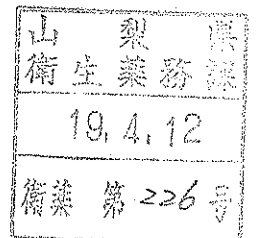 山梨県
衛生薬務課
19.4.12
衛薬 第226号